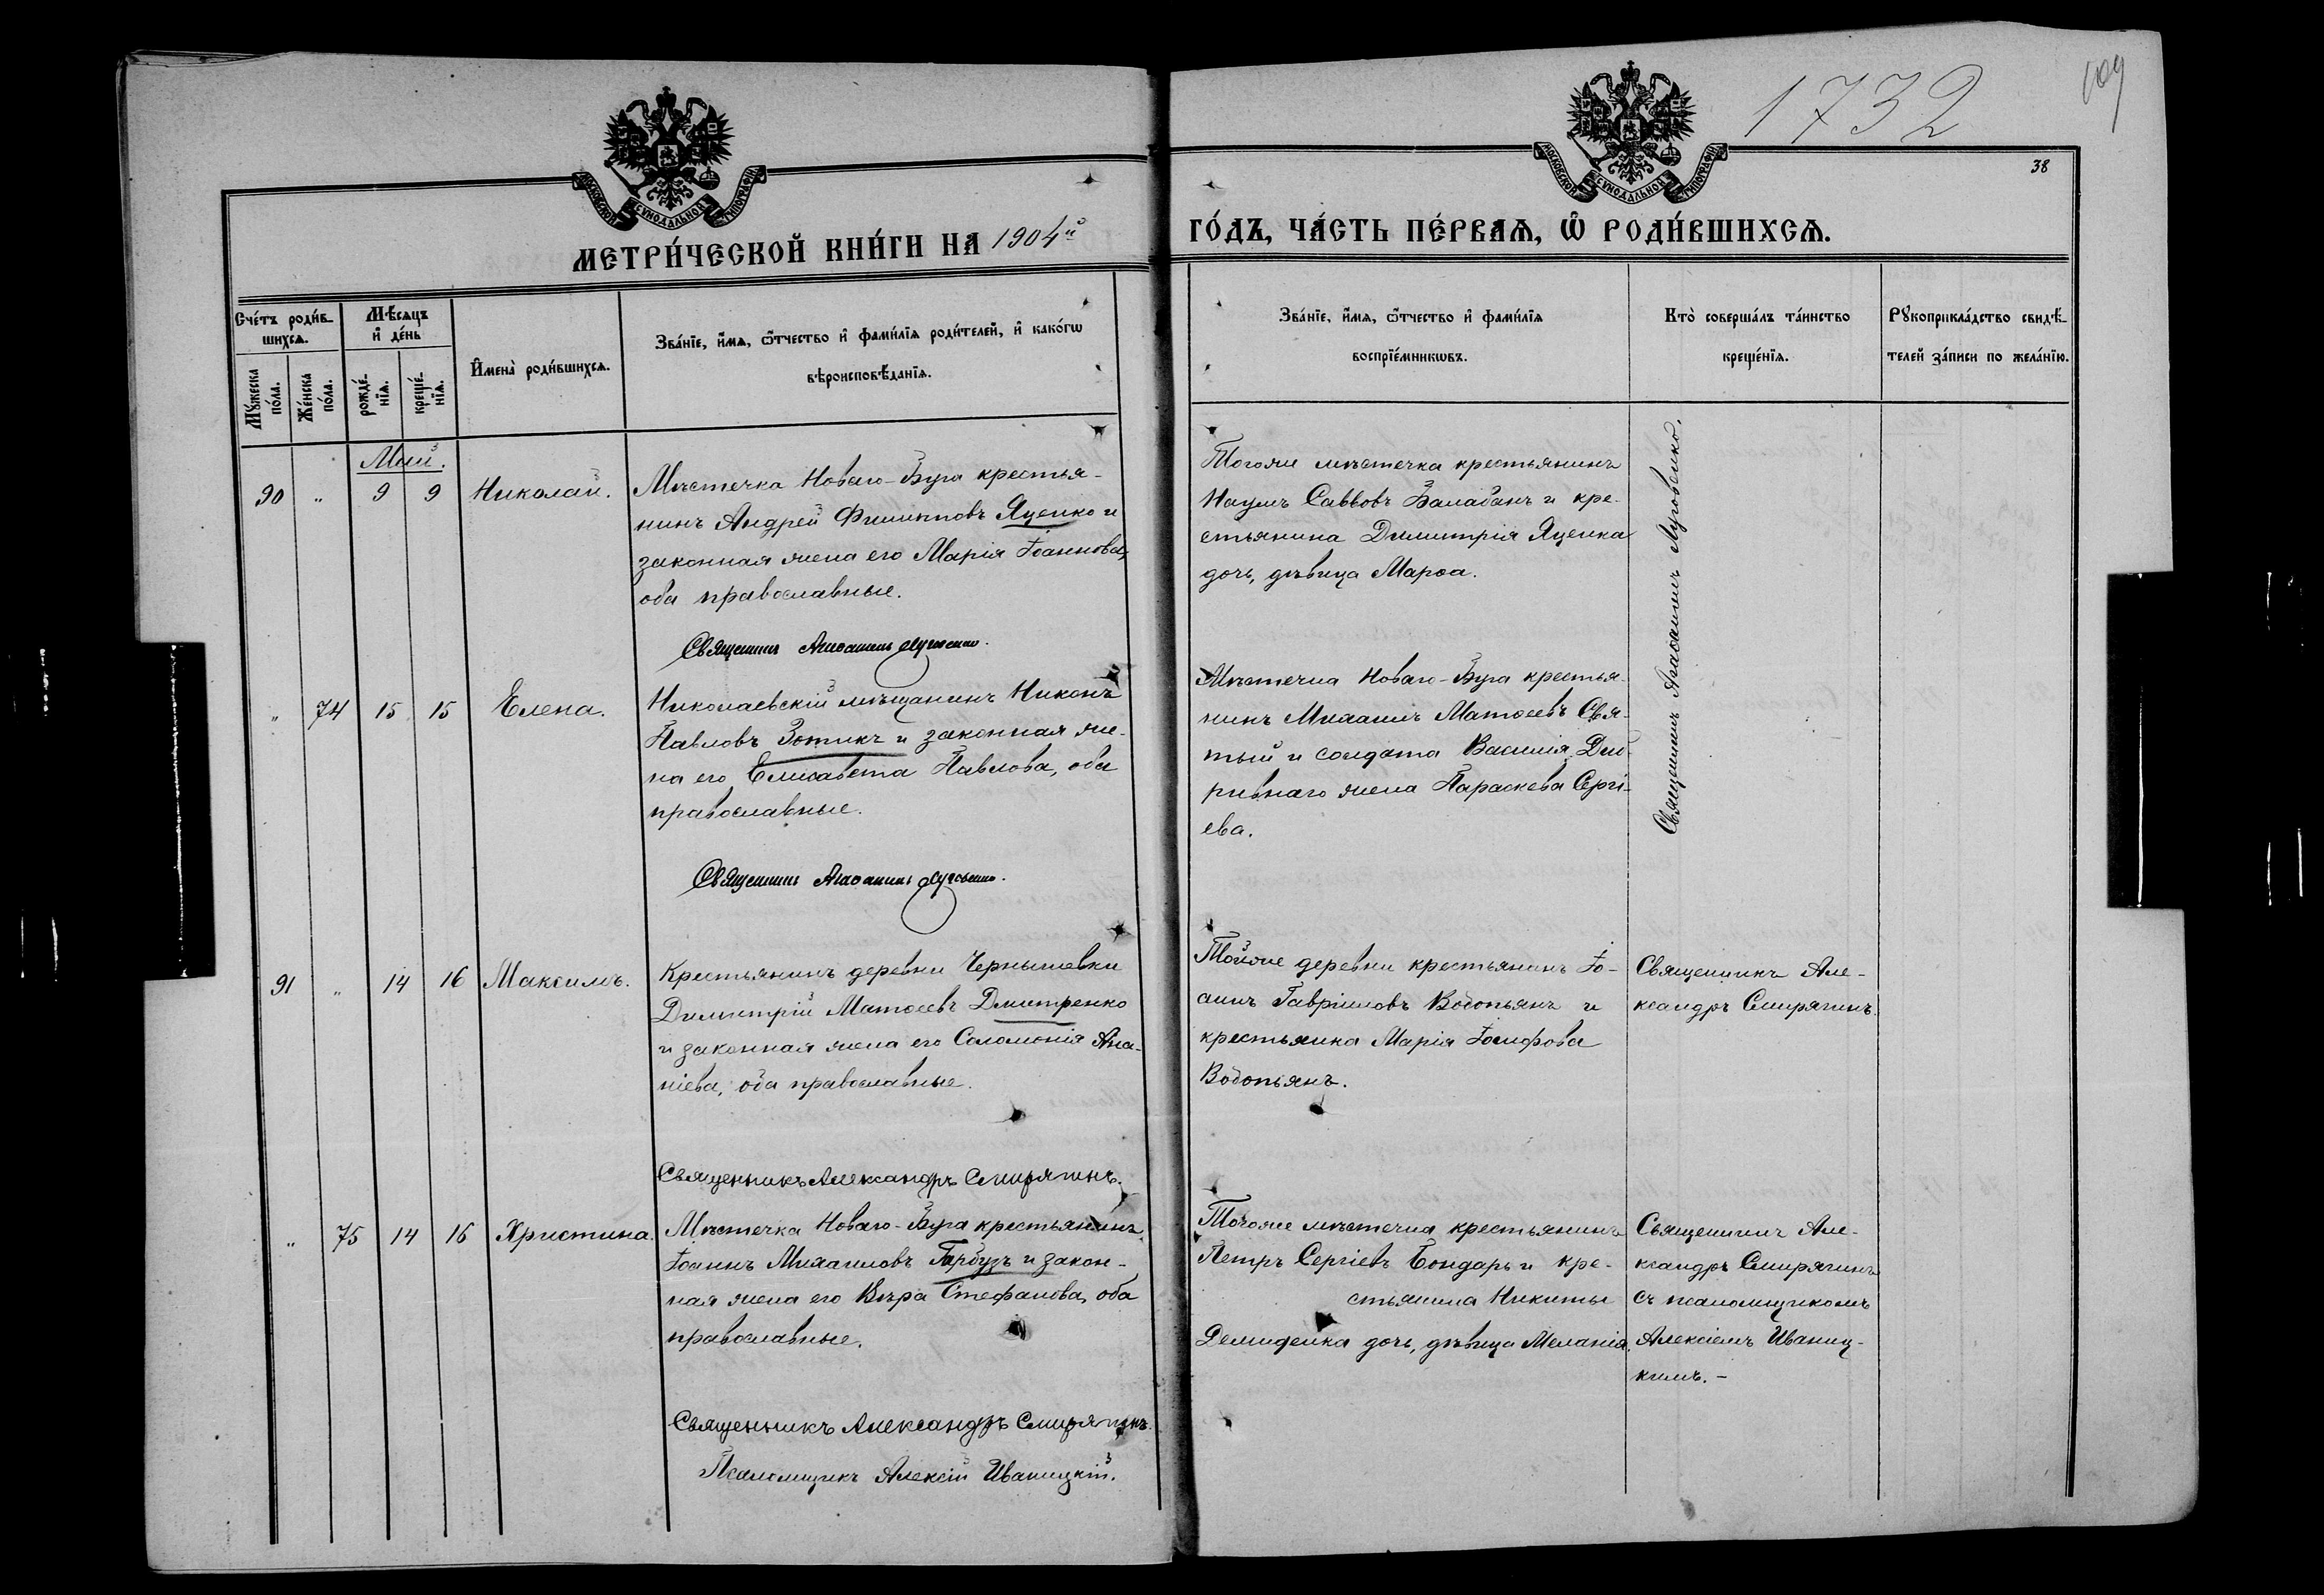 1732
109
38
МОСКОВСКОЙ СѴНОДАЛЬНОЙ ТИПОГРАФІИ
МОСКОВСКОЙ СѴНОДАЛЬНОЙ ТИПОГРАФІИ
МЕТРИ́ЧЕСКОЙ КНИ́ГИ НА 1904й
ГО́ДЪ, ЧА́СТЬ ПЕ́РВАѦ, Ѽ РОДИ́ВШИХСѦ.
Сче́тъ роди́в-
шихсѧ.
Мѣ́сѧцъ
и҆ де́нь
Мꙋ́жеска
по́ла.
Же́нска
по́ла.
рожде́-
нїѧ.
креще́-
нїѧ.
И҆мена̀ роди́вшихсѧ.
Зва́нїе, и҆́мѧ, ѻ҆́тчество и҆ фами́лїѧ роди́телей, и҆ како́гѡ
вѣроисповѣ́данїѧ.
Зва́нїе, и҆́мѧ, ѻ҆́тчество и҆ фами́лїѧ
воспрїе́мникѡвъ.
Кто̀ соверша́лъ та́инство
креще́нїѧ.
Рꙋкоприкла́дство свидѣ́-
телей за́писи по жела́нїю.
Май.
90 " 9 9 Николай.
Мѣстечка Новаго-Буга крестья-
нинъ Андрей Филипповъ Яценко и
законная жена его Марія Іоаннова,
оба православные.
Священникъ Агаѳангелъ Луговенко.
Тогоже мѣстечка крестьянинъ
Наумъ Саввовъ Балабанъ и кре-
стьянина Димитрія Яценка
дочь, дѣвица Марѳа.
Священникъ Агаѳангелъ Луговенко.
" 74 15 15 Елена.
Николаевскій мѣщанинъ Никонъ
Павловъ Зотикъ и законная же-
на его Елисавета Павлова, оба
православные.
Священникъ Агаѳангелъ Луговенко.
Мѣстечка Новаго-Буга крестья-
нинъ Михаилъ Матѳеевъ Свя-
тый и солдата Василія Диб-
ривнаго жена Параскева Сергі-
ева.
91 " 14 16 Максимъ.
Крестьянинъ деревни Чернышевки
Димитрій Матѳеевъ Дмитренко
и законная жена его Соломонія Ана-
ніева, оба православные.
Священникъ Александръ Смирягинъ.
Тойже деревни крестьянинъ Іо-
аннъ Гавріиловъ Водопьянъ и
крестьянка Марія Іосифова
Водопьянъ.
Священникъ Але-
ксандръ Смирягинъ.
" 75 14 16 Христина.
Мѣстечка Новаго-Буга крестьянинъ
Іоаннъ Михаиловъ Гарбузъ и закон-
ная жена его Вѣра Стефанова, оба
православные.
Священникъ Александръ Смирягинъ.
Псаломщикъ Алексій Иваницкій.
Тогоже мѣстечка крестьянинъ
Петръ Сергіевъ Бондарь и кре-
стьянина Никиты
Демиденка дочь, дѣвица Меланія.
Священникъ Але-
ксандръ Смирягинъ
съ псаломщикомъ
Алексіемъ Иваниц-
кимъ. -